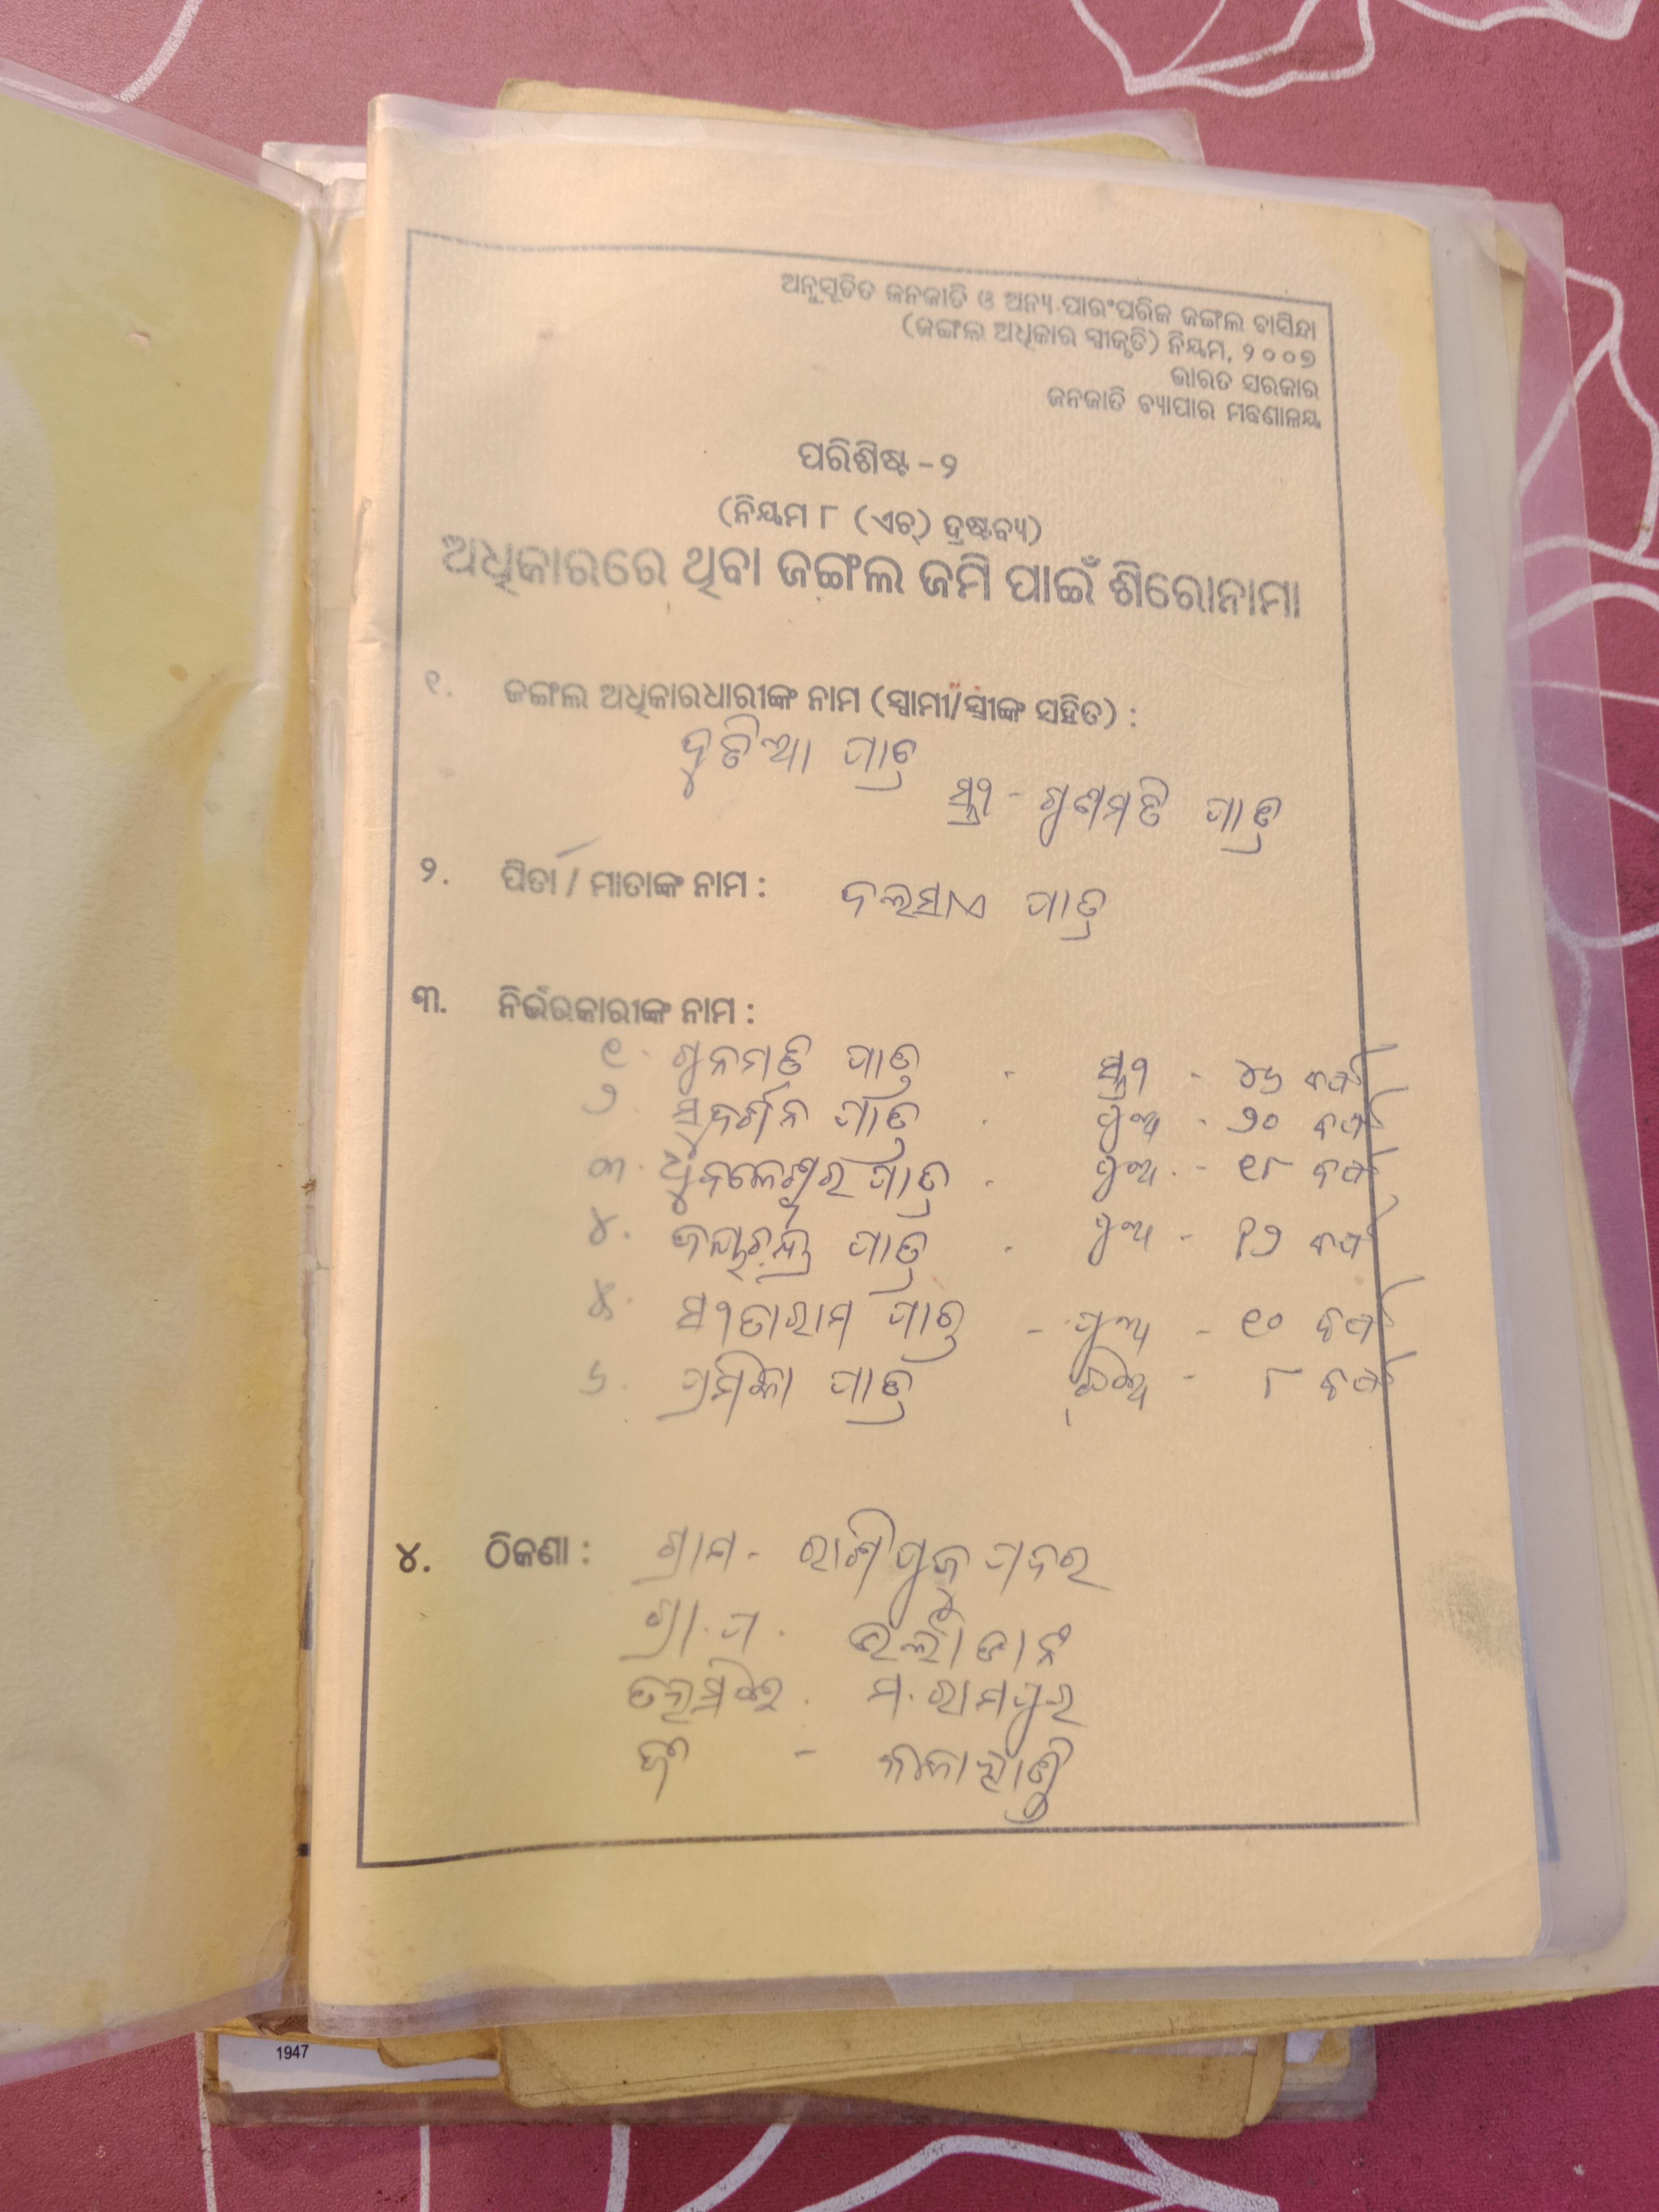 ଅନୁସୂଚିତ ଜନଜାତି ଓ ଅନ୍ୟ ପାରଂପରିକ ଜଙ୍ଗଲ ବାସିନ୍ଦା
(ଜଙ୍ଗଲ ଅଧିକାର ସ୍ୱୀକୃତି) ନିୟମ, ୨୦୦୭
ଭାରତ ସରକାର
ଜନଜାତି ବ୍ୟାପାର ମନ୍ତ୍ରଣାଳୟ
ପରିଶିଷ୍ଟ - ୨
(ନିୟମ ୮ (ଏଚ୍) ଦ୍ରଷ୍ଟବ୍ୟ)
ଅଧିକାରରେ ଥିବା ଜଙ୍ଗଲ ଜମି ପାଇଁ ଶିରୋନାମା
୧. ଜଙ୍ଗଲ ଅଧିକାରଧାରୀଙ୍କ ନାମ (ସ୍ୱାମୀ/ସ୍ତ୍ରୀଙ୍କ ସହିତ) :
ଦୁତିଆ ପାତ୍ର
ସ୍ତ୍ରୀ - ଗୁଣମତି ପାତ୍ର
୨. ପିତା / ମାତାଙ୍କ ନାମ : ଦଲସାଏ ପାତ୍ର
୩. ନିର୍ଭରକାରୀଙ୍କ ନାମ :
୧. ଗୁନମତି ପାତ୍ର - ସ୍ତ୍ରୀ - ୪୬ ବର୍ଷ
୨. ସୁଦର୍ଶନ ପାତ୍ର - ପୁଅ - ୨୦ ବର୍ଷ
୩. ପାତ୍ର - ପୁଅ - ୧୮ ବର୍ଷ
୪. ପାତ୍ର - ପୁଅ - ୧୨ ବର୍ଷ
୫. ସୀତାରାମ ପାତ୍ର - ପୁଅ - ୧୦ ବର୍ଷ
୬. ପାତ୍ର ଝିଅ - ୮ ବର୍ଷ
୪. ଠିକଣା : ଗ୍ରାମ -
ଗ୍ରା. ପ.
ମ. ରାମପୁର
ଜି - କଳାହାଣ୍ଡି
1947